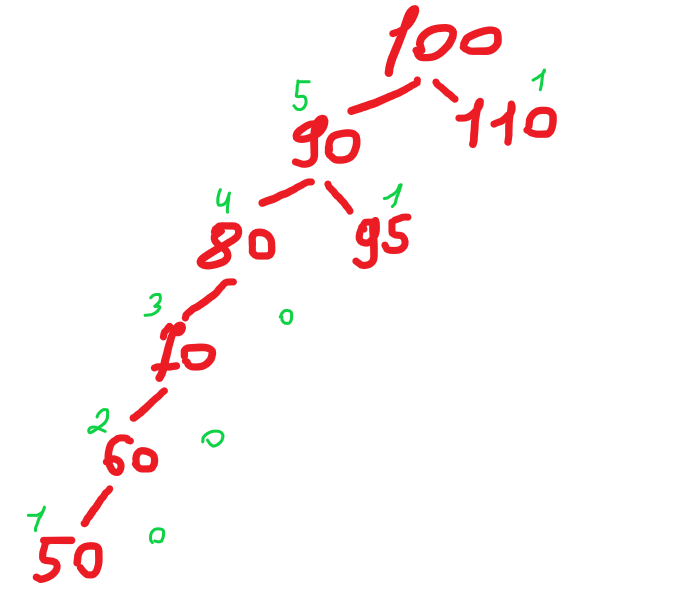 100
5 1
90 110
4 1
80 95
3 0
70
2 0
60
1 0
50